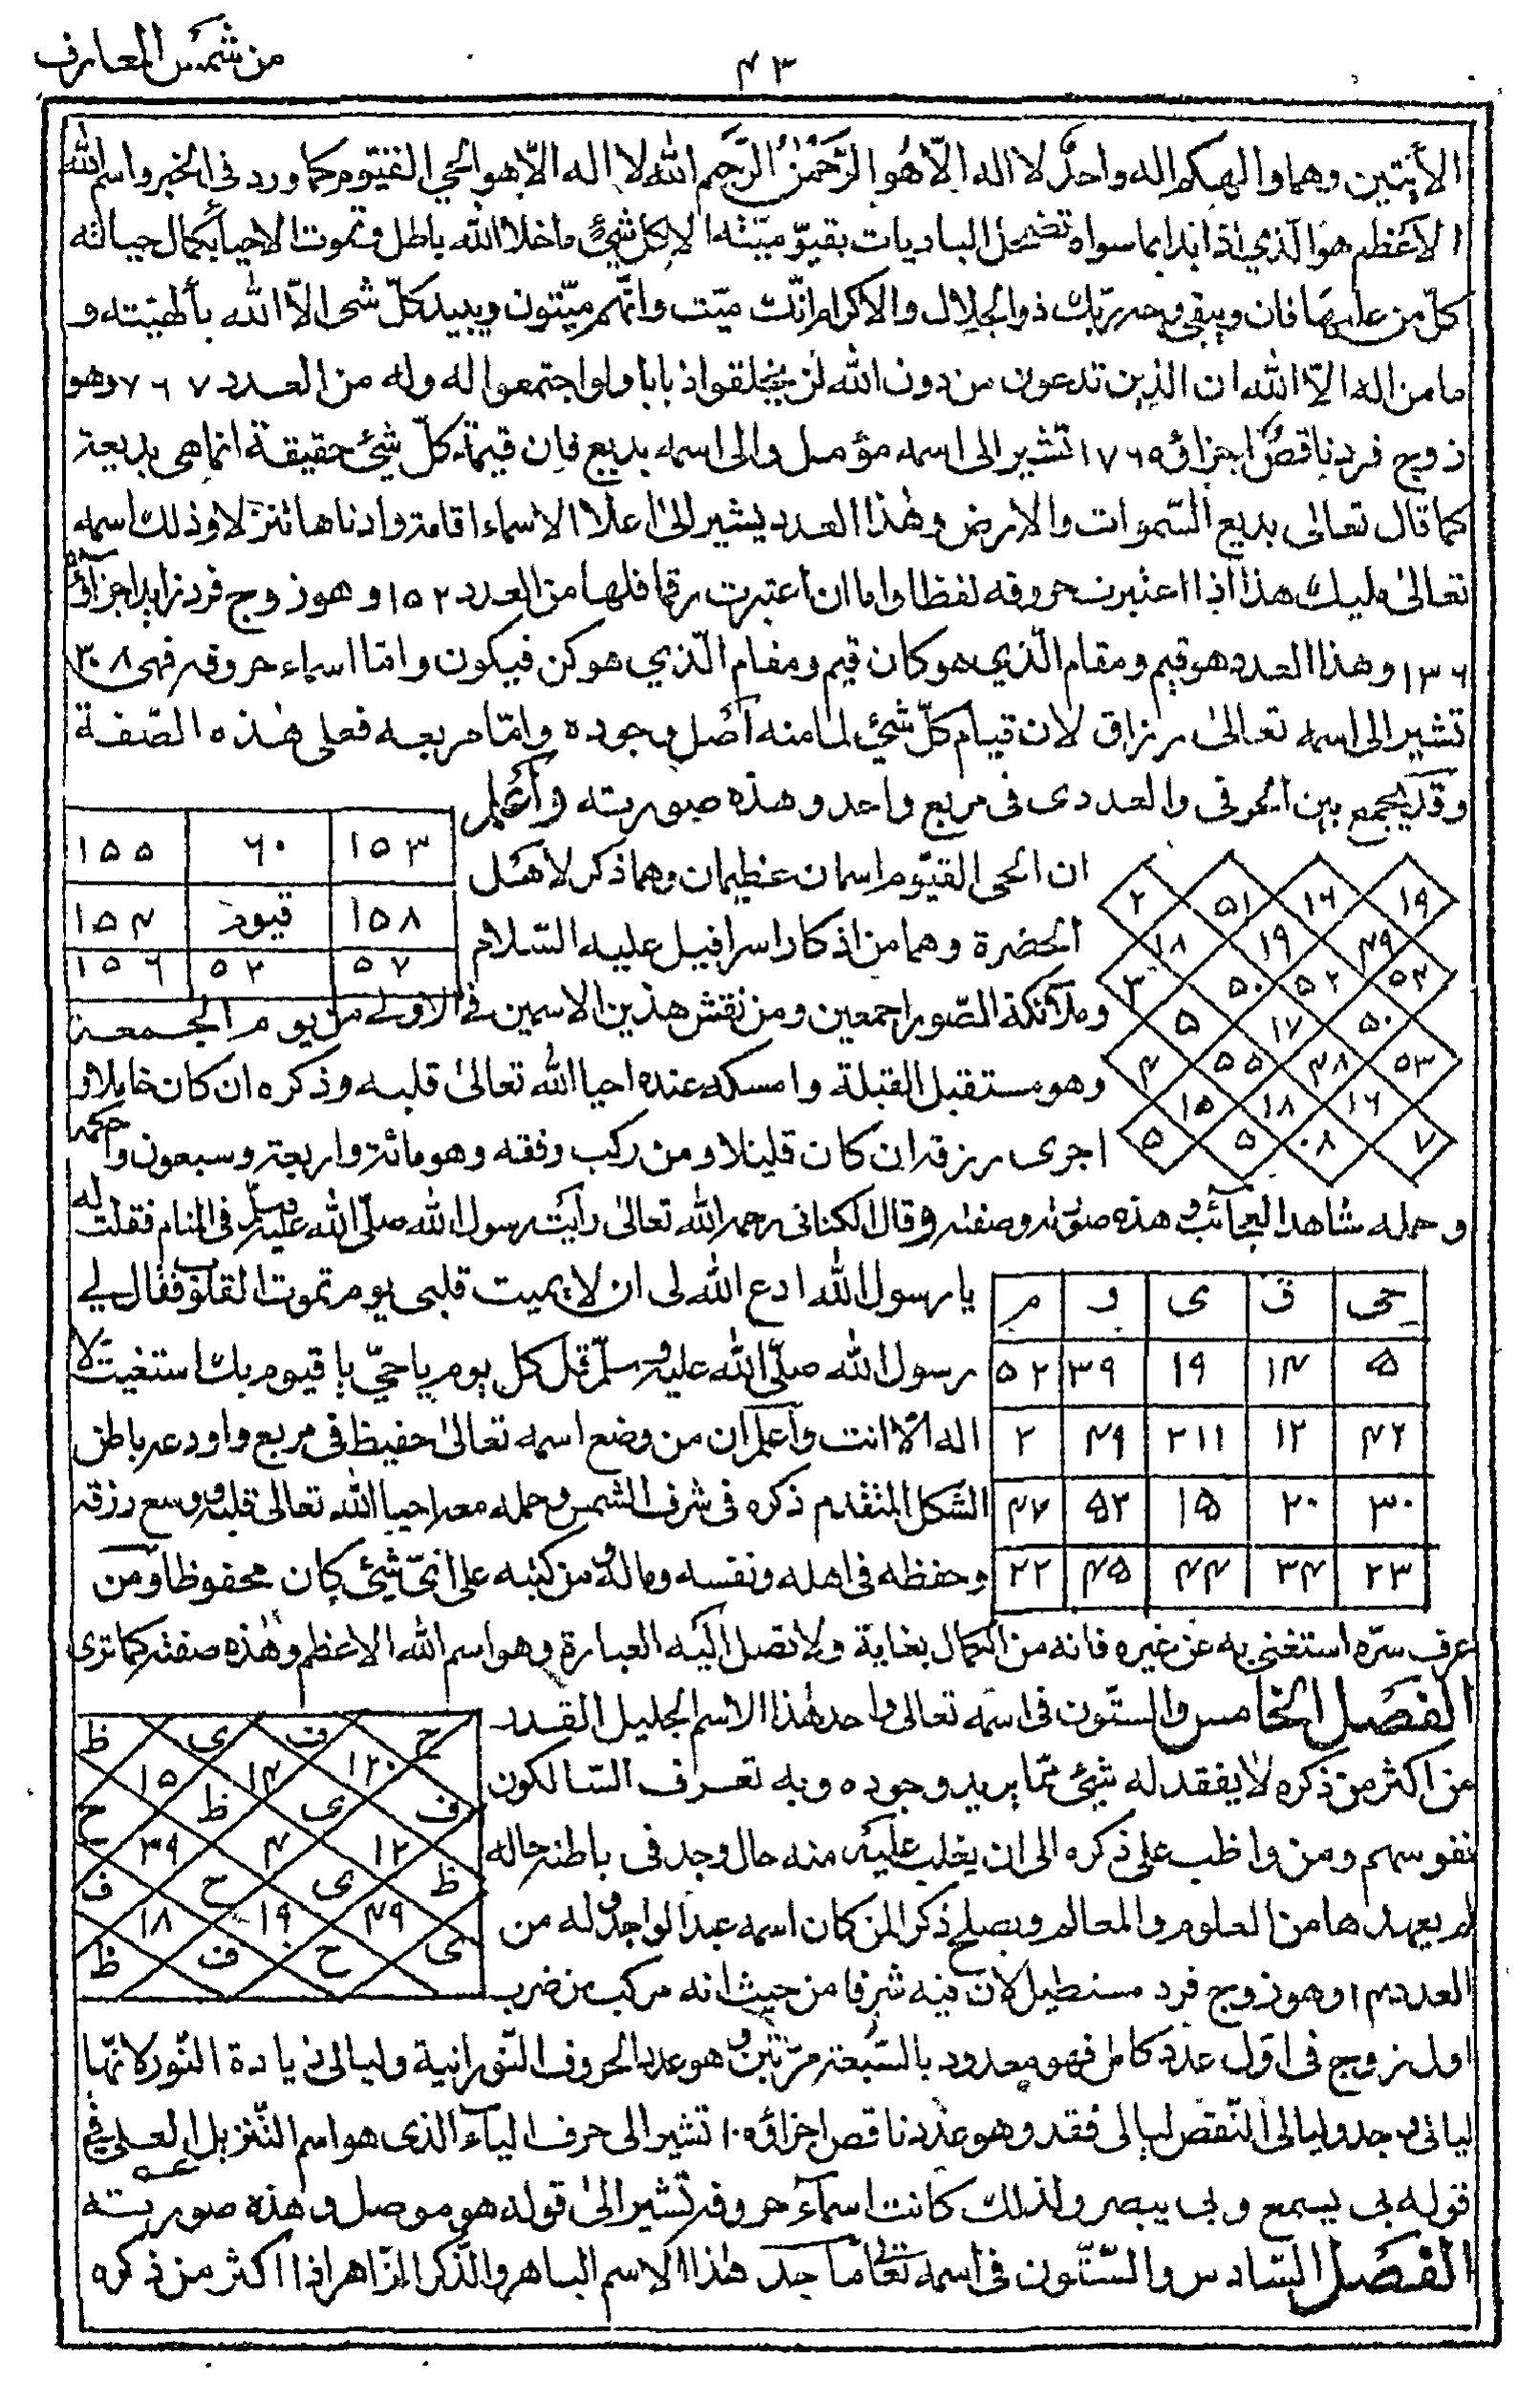 من شمس المعارف
٤٣
الأيتين وهما والهكم اله واحد لا اله الا هو الرحمن الرحيم الله لا اله الا هو الحي القيوم كما ورد في الخبر واسم الله
الأعظم هو الذي اذا بدا بما سواه تضمحل الباديات بقيوميته الا كل شئ ما خلا الله باطل وتموت الاحيا بكمال حياته
كل من عليها فان ويبقى وجه ربك ذو الجلال والاكرام انك ميت وانهم ميتون ويبيد كل شئ الا الله بألهيته و
ما من اله الا الله ان الذين تدعون من دون الله لن يخلقوا ذبابا ولو اجتمعوا له وله من العدد ٧٦٧ وهو
زوج فرد ناقص اجزاؤه ١٧٦٥ تشير الى اسمه مؤمل والى اسمه بديع فان قيمة كل شئ حقيقة انما هي بديعة
كما قال تعالى بديع السموات والارض وهذا العدد يشير الى اعلا الاسماء اقامة وادناها تنزلا وذلك اسمه
تعالى مليك هذا اذا اعتبرت حروفه لفظا واما ان اعتبرت رقما فلها من العدد ١٥٢ وهو زوج فرد زايد اجزاؤه
١٣٦ وهذا العدد هو قيم ومقام الذي هو كان قيم ومقام الذي هو كن فيكون واما اسماء حروفه فهى ٣٠٨
تشير الى اسمه تعالى رزاق لان قيام كل شئ لما منه اصل وجوده واما مربعه فعلى هذه الصفة
وقد يجمع بين الحرفي والعددى فى مربع واحد وهذه صورته واعلم
١٥٣ ٦٠ ١٥٥
١٥٨ قيوم ١٥٤
٥٧ ٥٢ ١٥٦
ان الحى القيوم اسمان عظيمان وهما ذكر لأهل
الحضرة وهما من اذكار اسرافيل عليه السلام
وملائكة الصور اجمعين ومن نقش هذين الاسمين في الاولى من يوم الجمعة
وهو مستقبل القبلة وامسكه عنده احيا الله تعالى قلبه وذكره ان كان خاملا و
اجرى رزقه ان كان قليلا ومن ركب وفقه وهو مائة واربعة وسبعون واحكمه
١٩ ١٦ ٥١ ٢
٤٩ ١٩ ١٨
٥٤ ٥٢ ٥٠ ٣
٥٠ ١٧ ٥
٥٣ ٤٨ ٥٥ ٤
١٦ ١٨ ١٥
٧ ٠٨ ٥ ٥
وحمله شاهد العجائب وهذه صورته وصفته وقال الكنانى رحمه الله تعالى رأيت رسول الله صلى الله عليه وسلم في المنام فقلت له
يا رسول الله ادع الله لى ان لا يميت قلبى يوم تموت القلوب فقال لي
رسول الله صلى الله عليه وسلم قل كل يوم يا حي يا قيوم بك استغيث لا
اله الا انت واعلم ان من وضع اسمه تعالى حفيظ فى مربع واودعه باطن
الشكل المتقدم ذكره فى شرف الشمس وحمله معه احيا الله تعالى قلبه ووسع رزقه
وحفظه فى اهله ونفسه وماله ومن كتبه على اى شئ كان محفوظا ومن
حى ق ى و م
٥ ١٤ ١٩ ٣٩ ٥٢
٤٢ ١٢ ٢١١ ٤٩ ٢
٣٠ ٢٠ ١٥ ٥٢ ٤٧
٢٣ ٣٤ ٤٤ ٤٥ ٢٢
عرف سره استغنى به عن غيره فانه من الكمال بغاية ولا تصل اليه العبارة وهو اسم الله الاعظم وهذه صفته كما ترى
الفصل الخامس والستون فى اسمه تعالى واجد هذا الاسم الجليل القدر
من اكثر من ذكره لا يفقد له شئ مما يريد وجوده وبه تعرف السالكون
نفوسهم ومن واظب على ذكره الى ان يغلب عليه منه حال وجد فى باطنه حاله
لم يعهدها من العلوم والمعالم ويصلح ذكرا لمن كان اسمه عبد الواجد وله من
العدد ١٤ وهو زوج فرد مستطيل لان فيه شرفا من حيث انه مركب من ضرب
ح ف ى ظ
١٢٠ ١٤ ١٥
ف ى ظ ح
١٢ ٤ ٣٩
ظ ى ح ف
٤٩ ١٩ ١٨
ى ح ف ظ
اول زوج فى اول عدد كامل فهو معدود بالسبعة مرتين وهو عدد الحروف النورانية وليالى زيادة النور لانها
ليالى وجد وليالى النقص ليالى فقد وهو عدد ناقص اجزاؤه ١٠ تشير الى حرف الياء الذى هو اسم التنزيل العلى في
قوله بى يسمع وبى يبصر ولذلك كانت اسماء حروفه تشير الى قوله هو موصل وهذه صورته
الفصل السادس والستون فى اسمه تعالى ماجد هذا الاسم الباهر والذكر الزاهر اذا اكثر من ذكره